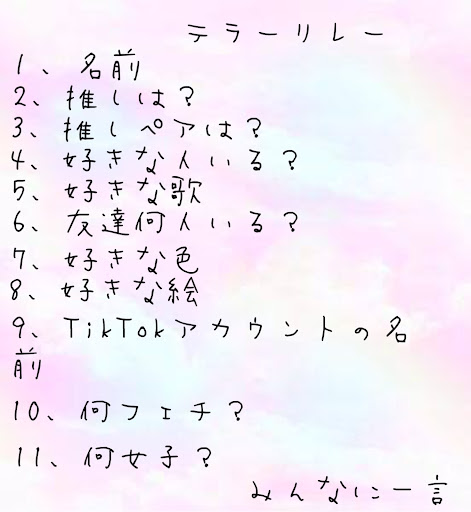 テラーリレー
1、名前
2、推しは?
3、推しペアは?
4、好きな人いる?
5、好きな歌
6、友達何人いる?
7、好きな色
8、好きな絵
9、TikTokアカウントの名
前
10、何フェチ?
11、何女子?
みんなに一言